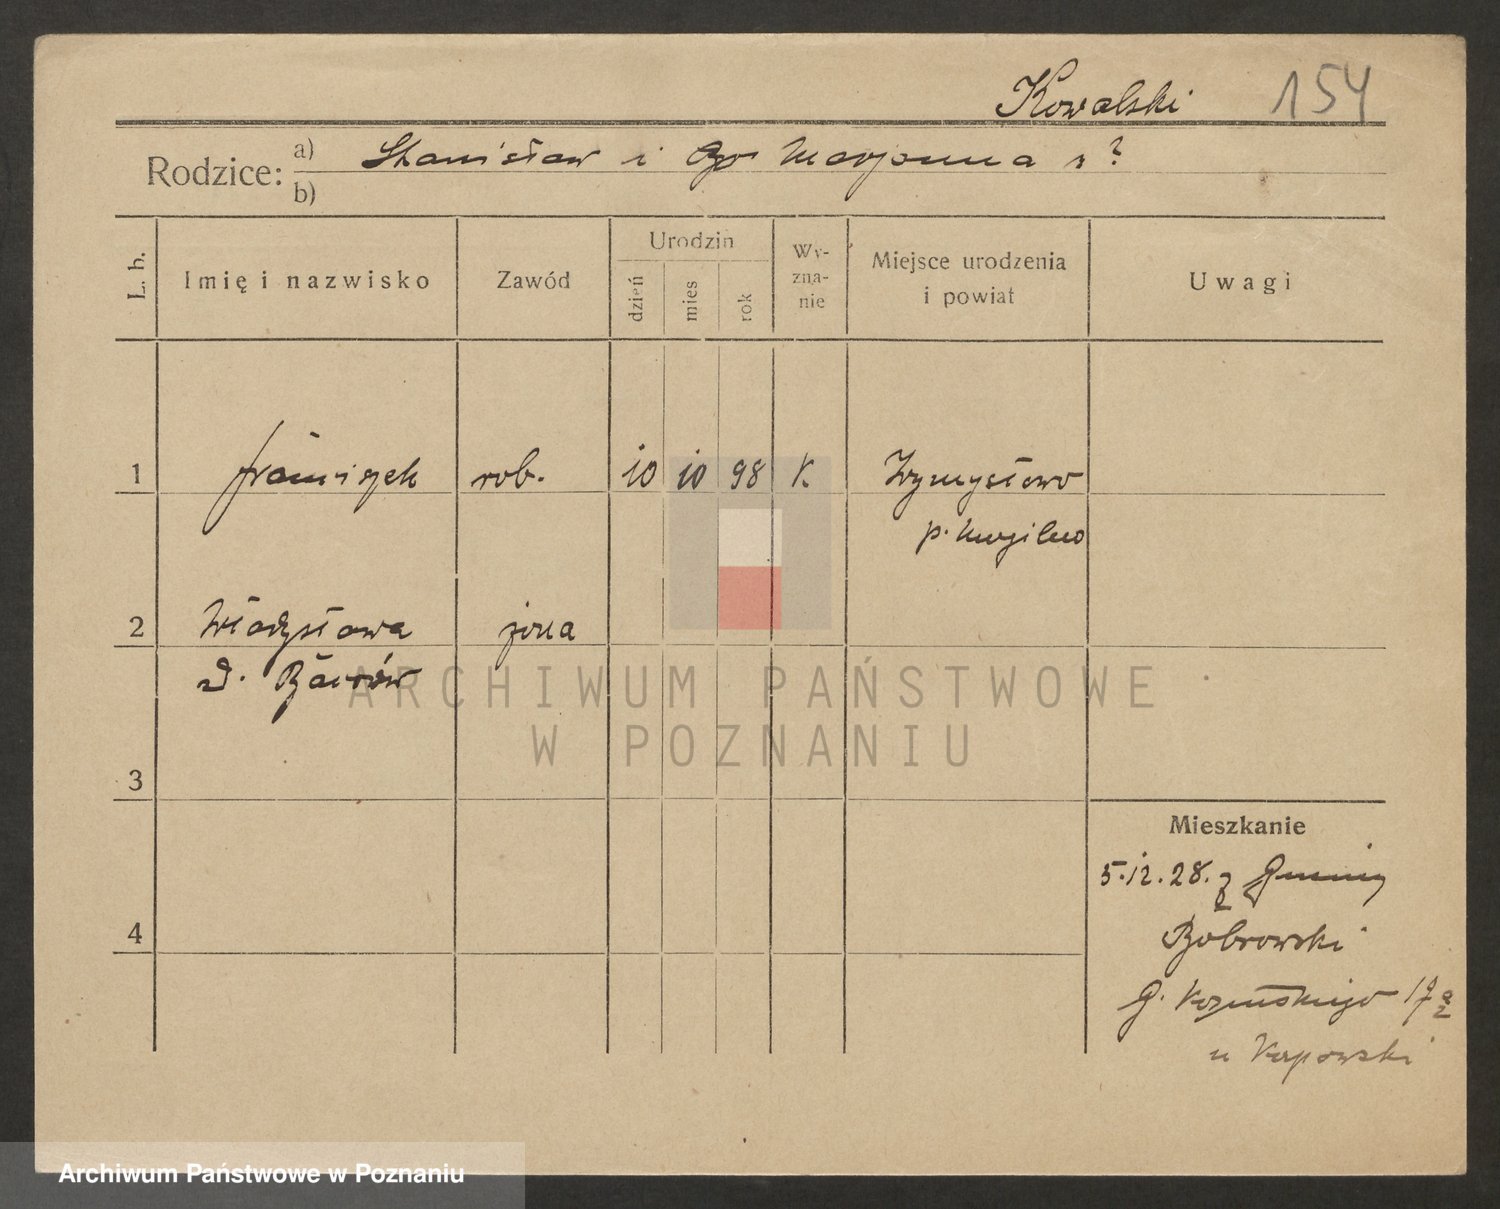 Kowalski 154
Rodzice: a) Stanisław i Maryanna z ?
b)
L. b.
Imię i nazwisko
Zawód
Urodzin
dzień
mies
rok
Wy-
zna-
nie
Miejsce urodzenia
i powiat
Uwagi
1 Franciszek rob. 10 10 98 K
p. Mogilno
2 Władysława żona
3
4
Mieszkanie
5.12.28. z Gminy
Bobrowski
u Karpowski
ARCHIWUM PAŃSTWOWE
W POZNANIU
Archiwum Państwowe w Poznaniu